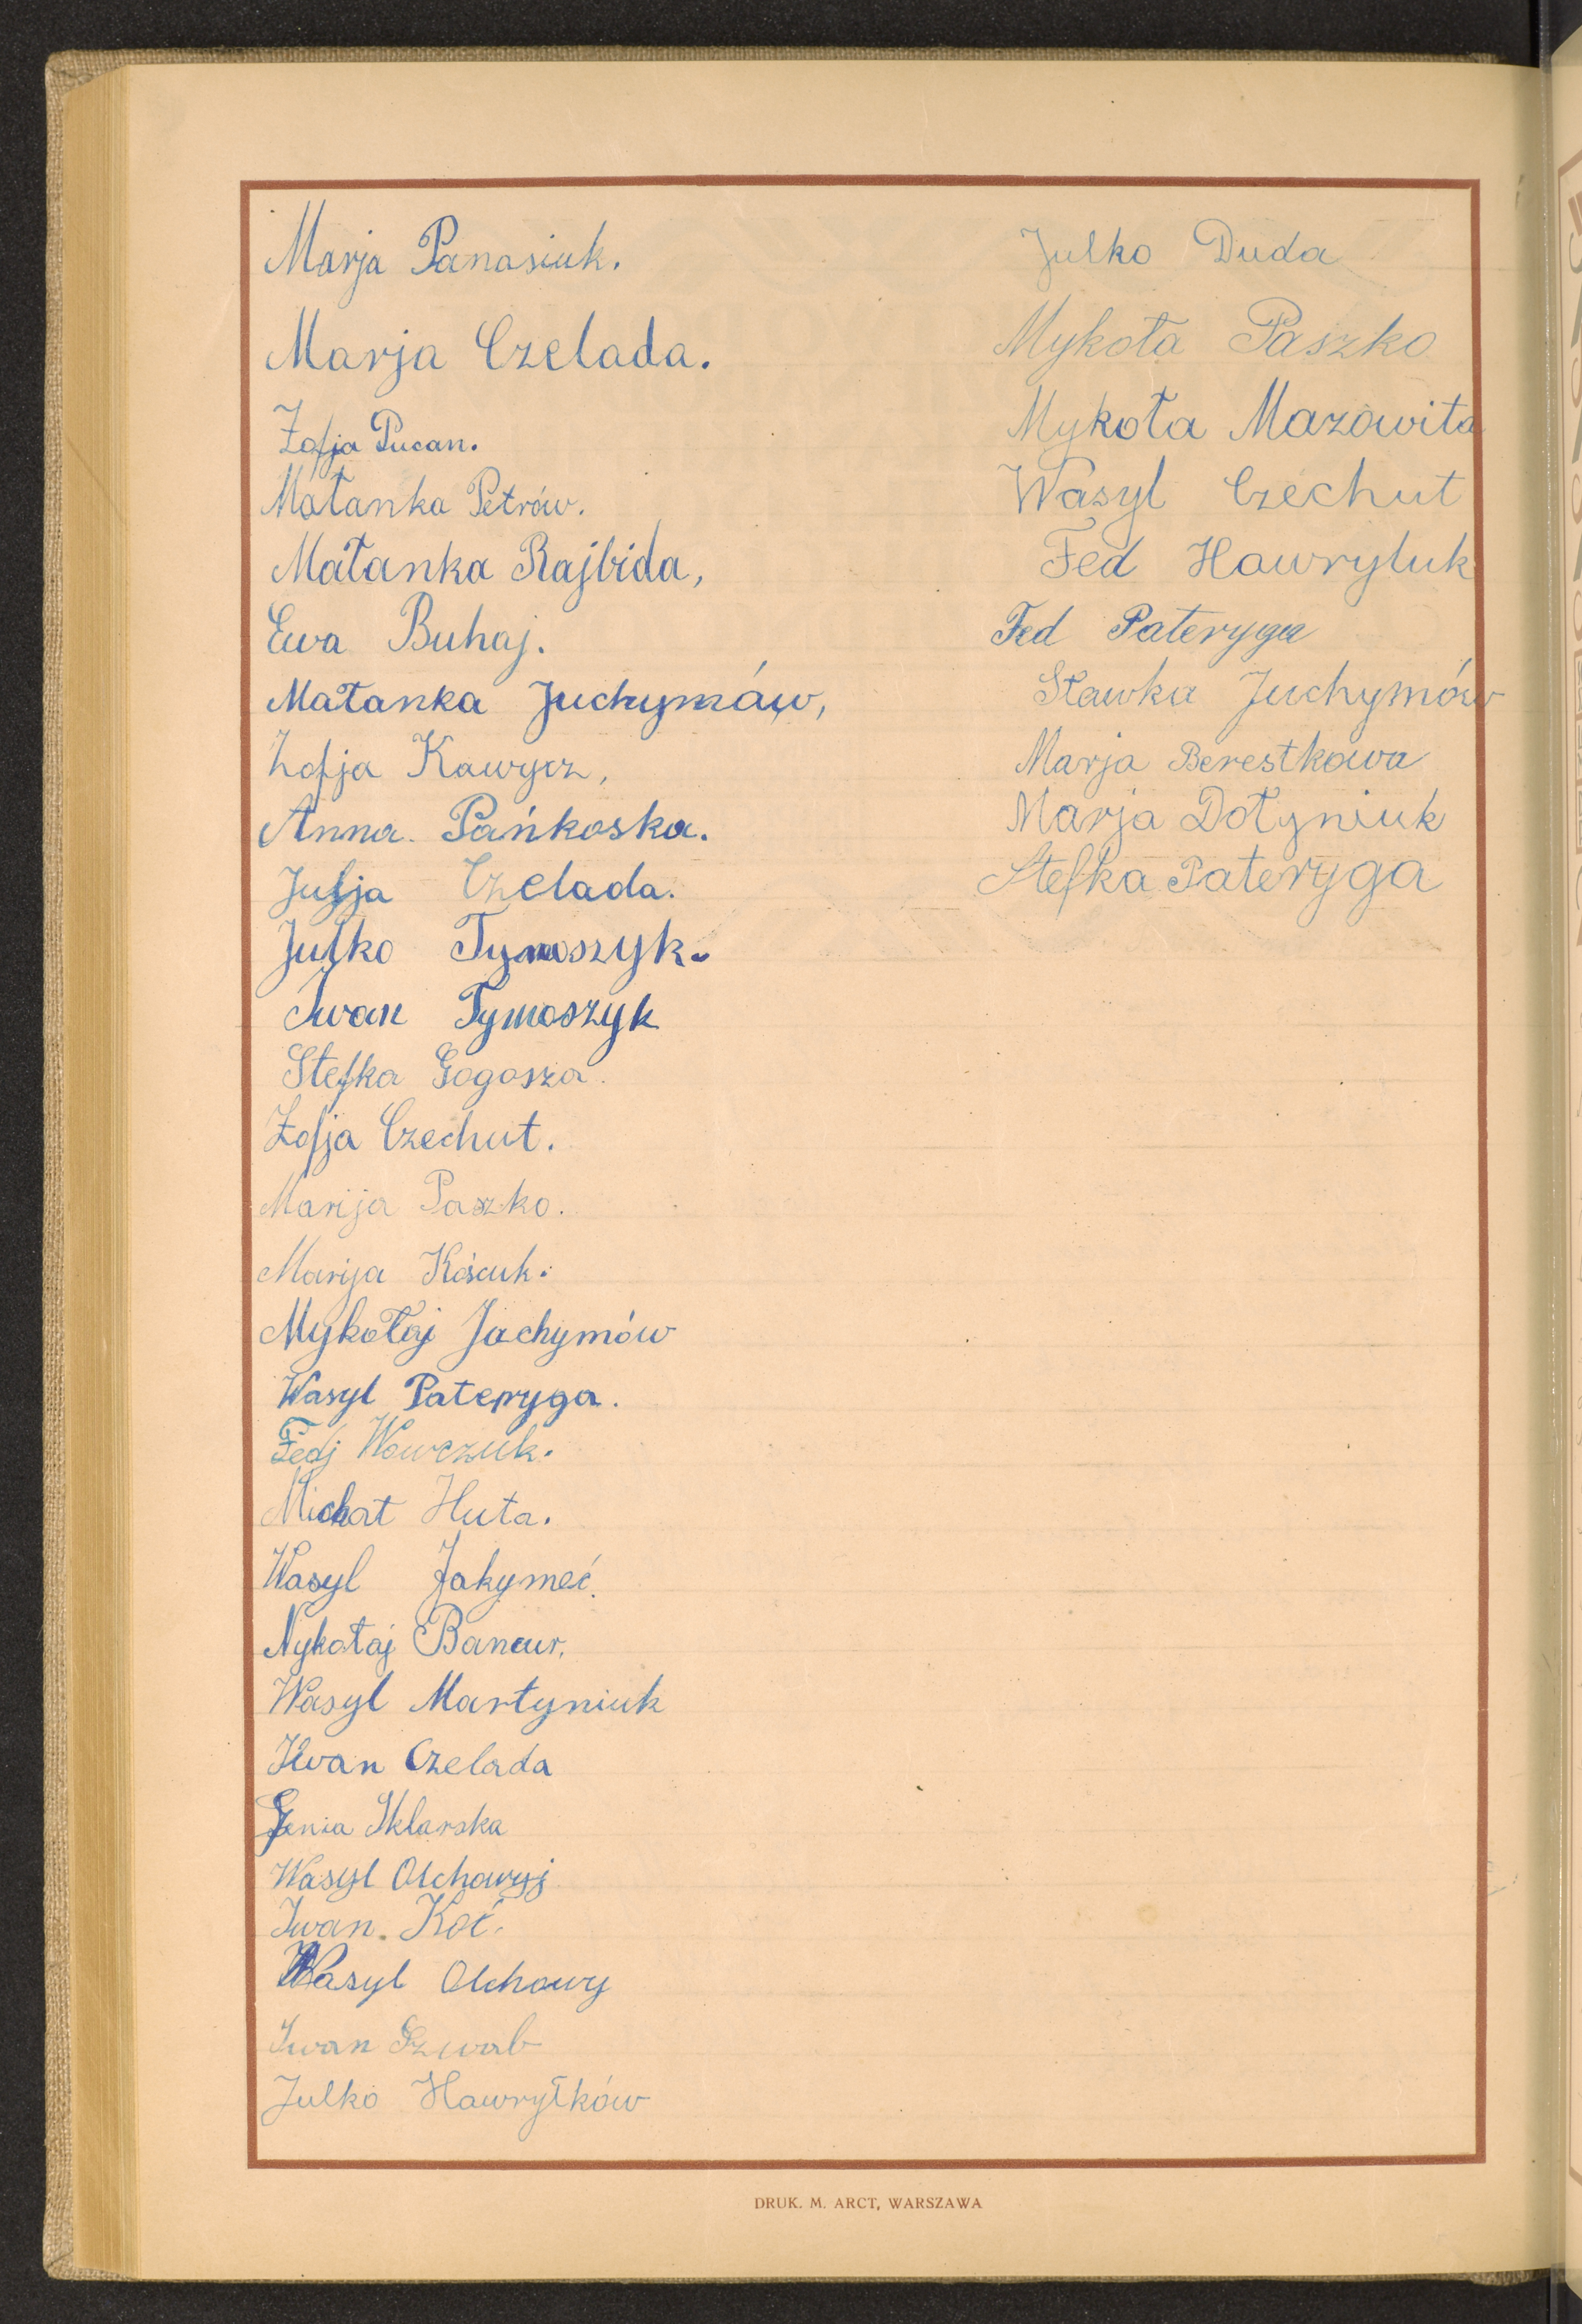 Marja Panasiuk.
Marja Czelada.
Zofja Pucan.
Małanka Petrów.
Małanka Rajbida,
Ewa Buhaj.
Małanka Juchymów,
Zofja Kawycz,
Anna Pańkoska.
Julja Czelada.
Julko Tymoszyk.
Iwan Tymoszyk
Stefka Gogosza.
Zofja Czechut.
Marija Paszko.
Marija Kościuk.
Mykołaj Jachymów
Wasyl Pateryga.
Fedj Wowczuk.
Michał Huta.
Wasyl Jakymeć.
Nykołaj Bancur.
Wasyl Martyniuk
Iwan Czelada
Genia Sklarska
Wasyl Olchowyj
Iwan Koć.
Wasyl Olchowy
Iwan Szwab
Julko Hawryłków
Julko Duda
Mykoła Paszko
Mykoła Mazowita
Wasyl Czechut
Fed Hawryluk
Fed Pateryga
Sławka Juchymów
Marja Berestkowa
Marja Dołyniuk
Stefka Pateryga
DRUK. M. ARCT, WARSZAWA